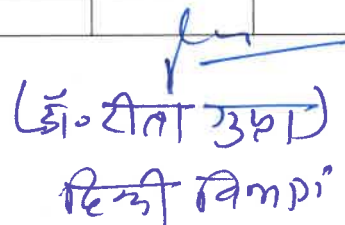 (डॉ० रीता गुप्ता)
हिन्दी विभाग